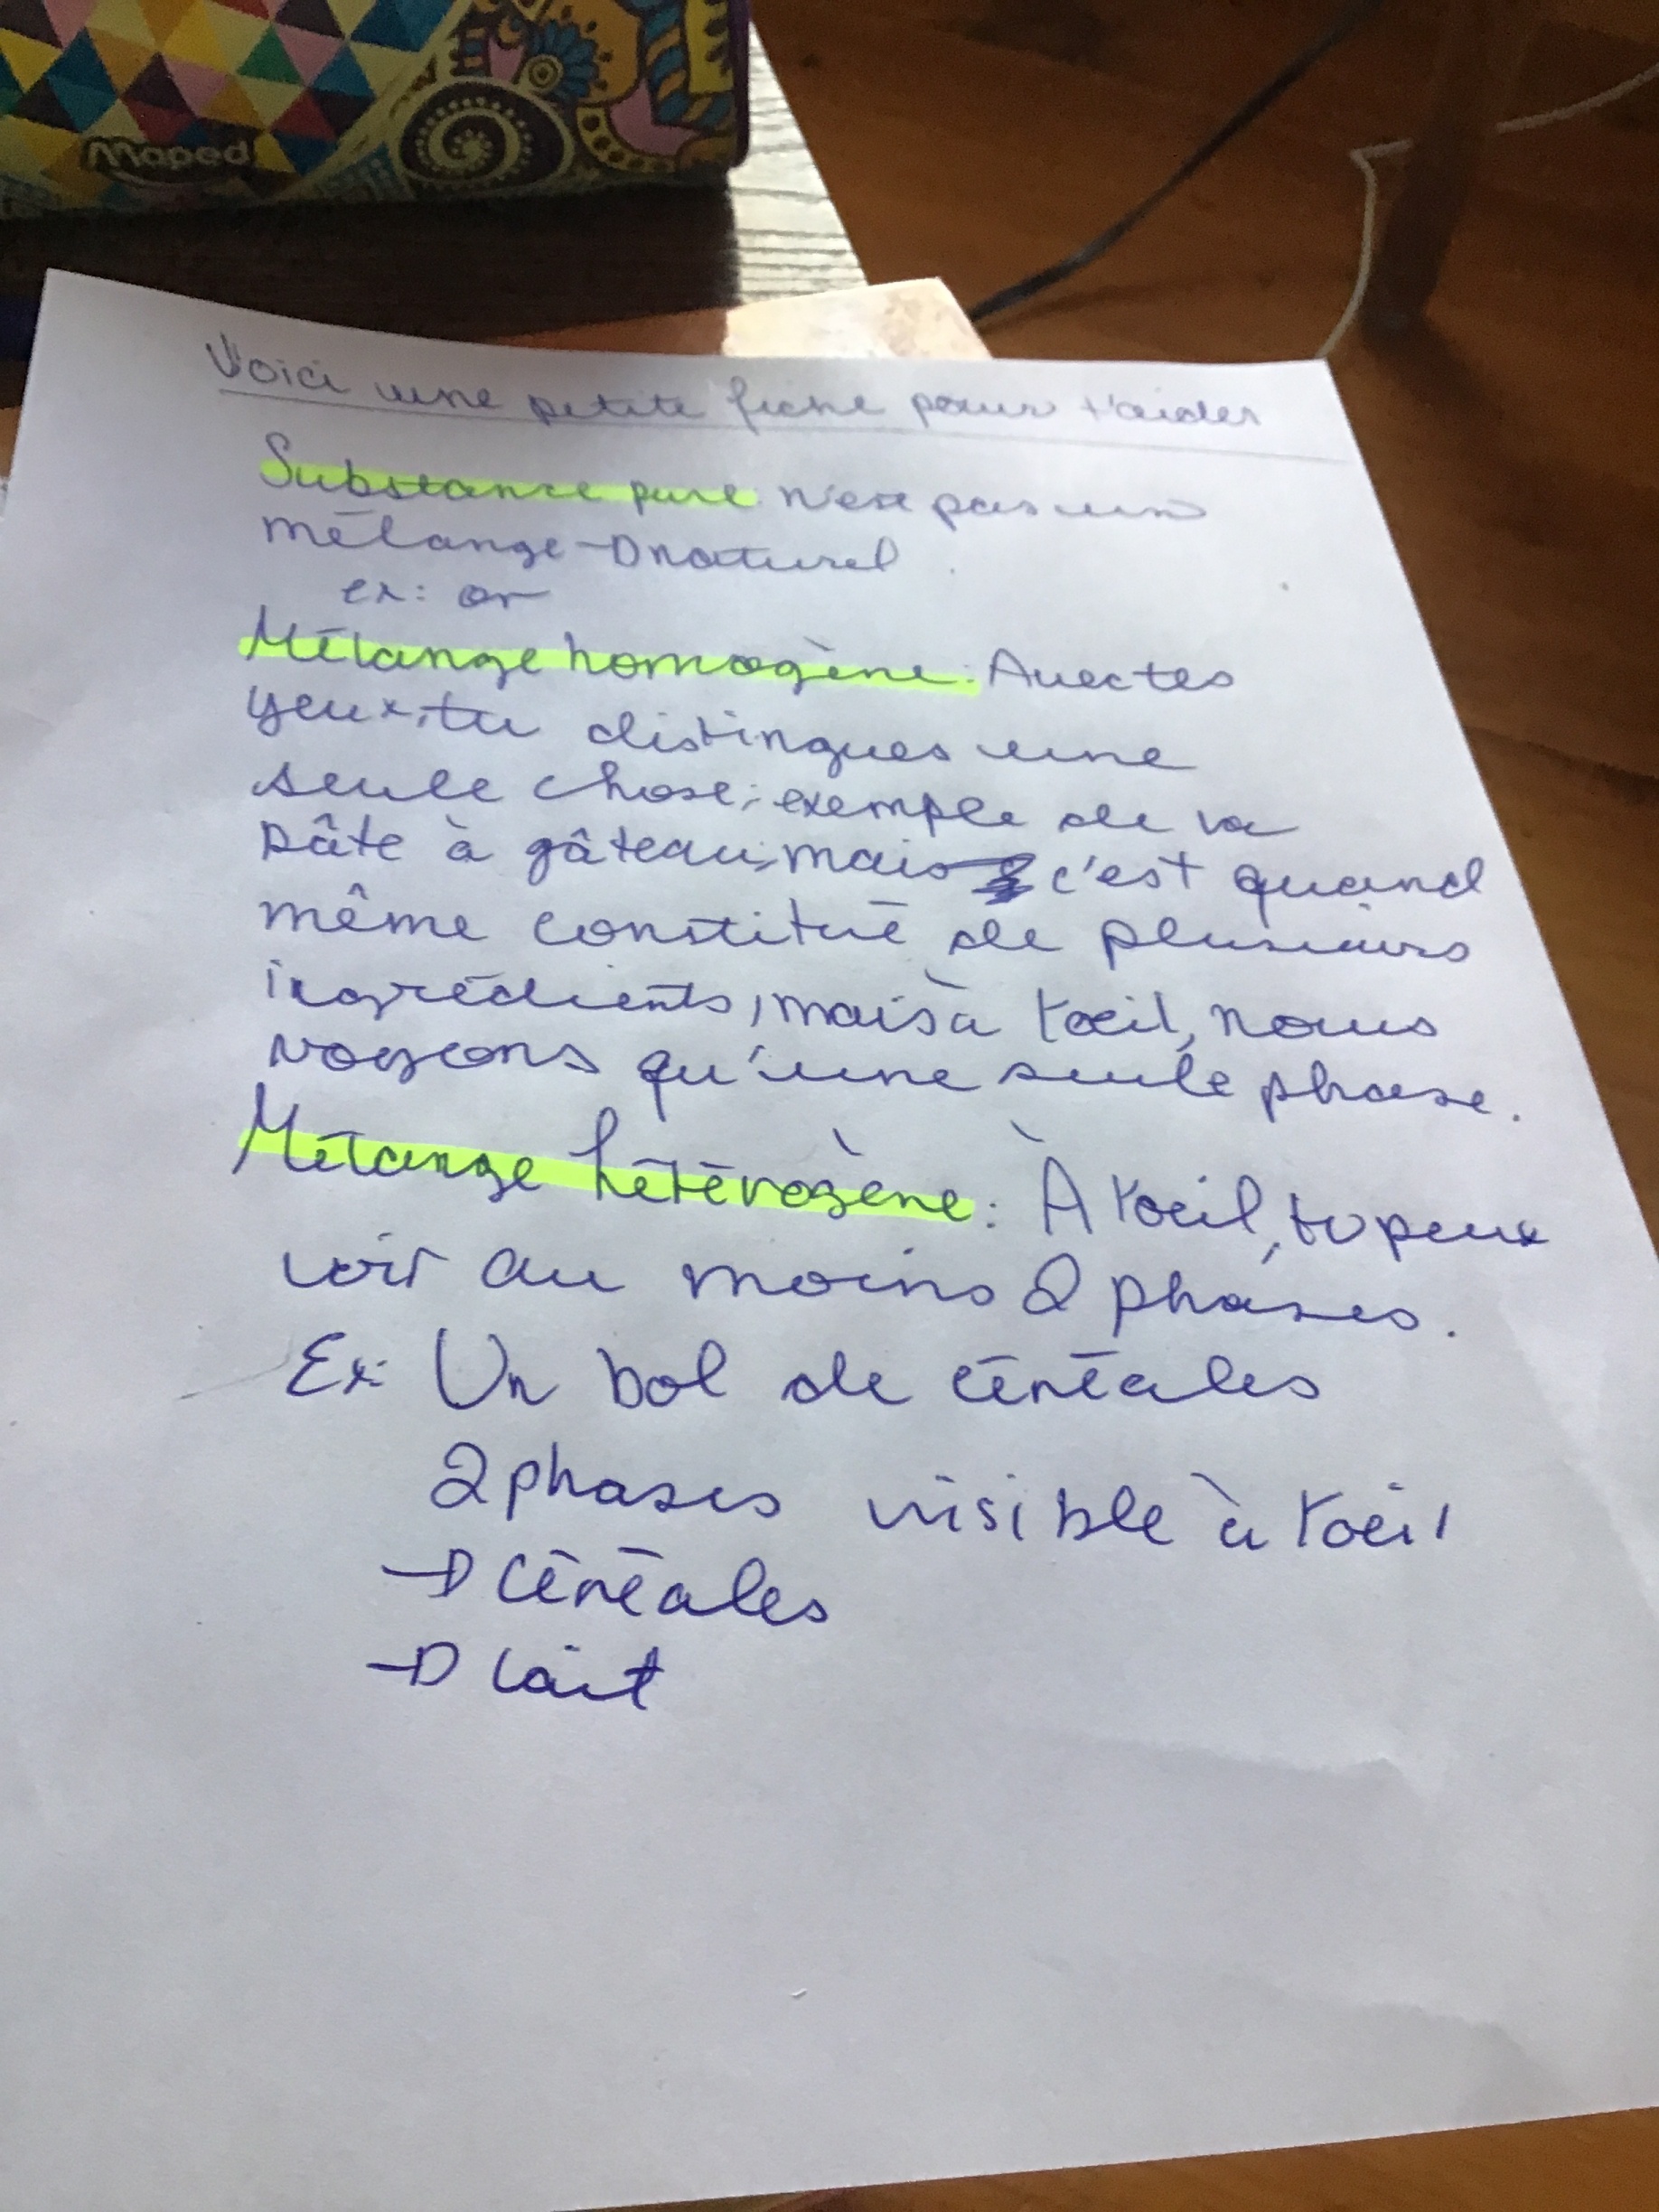 Maped
Voici une petite fiche pour t'aider
Substance pure n'est pas un
mélange → naturel
ex: or
Mélange homogène: Avec tes
yeux, tu distingues une
seule chose; exemple de la
pâte à gâteau, mais c'est quand
même constitué de plusieurs
ingrédients, mais à l'oeil, nous
voyons qu'une seule phase.
Mélange hétérogène: À l'oeil, tu peux
voir au moins 2 phases.
Ex: Un bol de céréales
2 phases visible à l'oeil
→ Céréales
→ lait